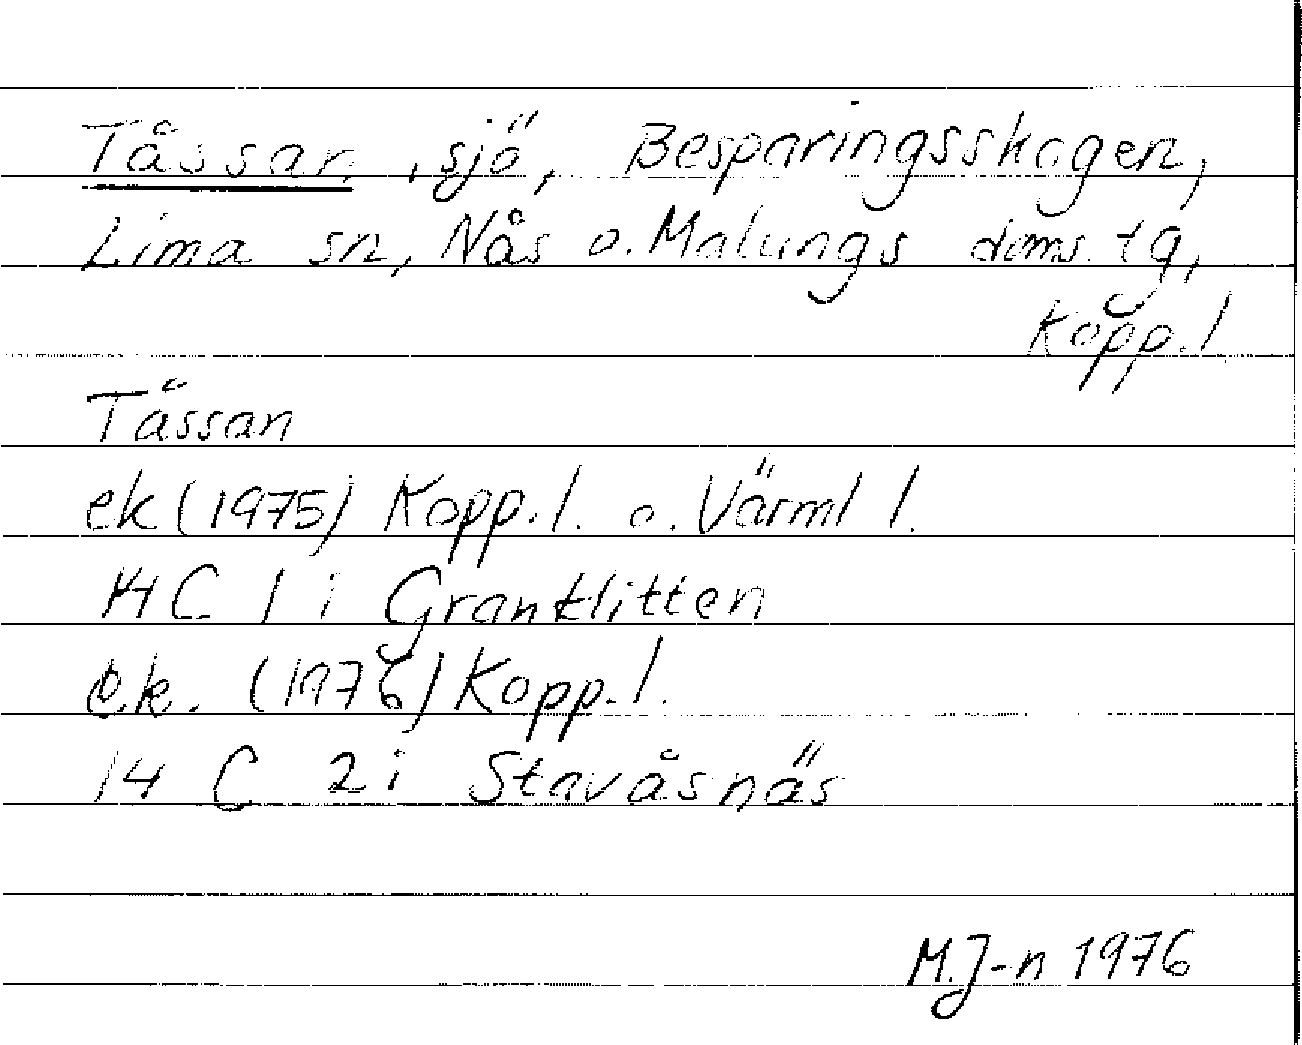 Tåssan, sjö, Besparingsskogen,
Lima sn, Nås o. Malungs doms. tg,
Kopp. l
Tåssan
ek (1975) Kopp. l. o. Värml l.
14C 1 i Granklitten
ek. (1976) Kopp. l.
14 C 2 i Stavåsnäs
M.J-n 1976